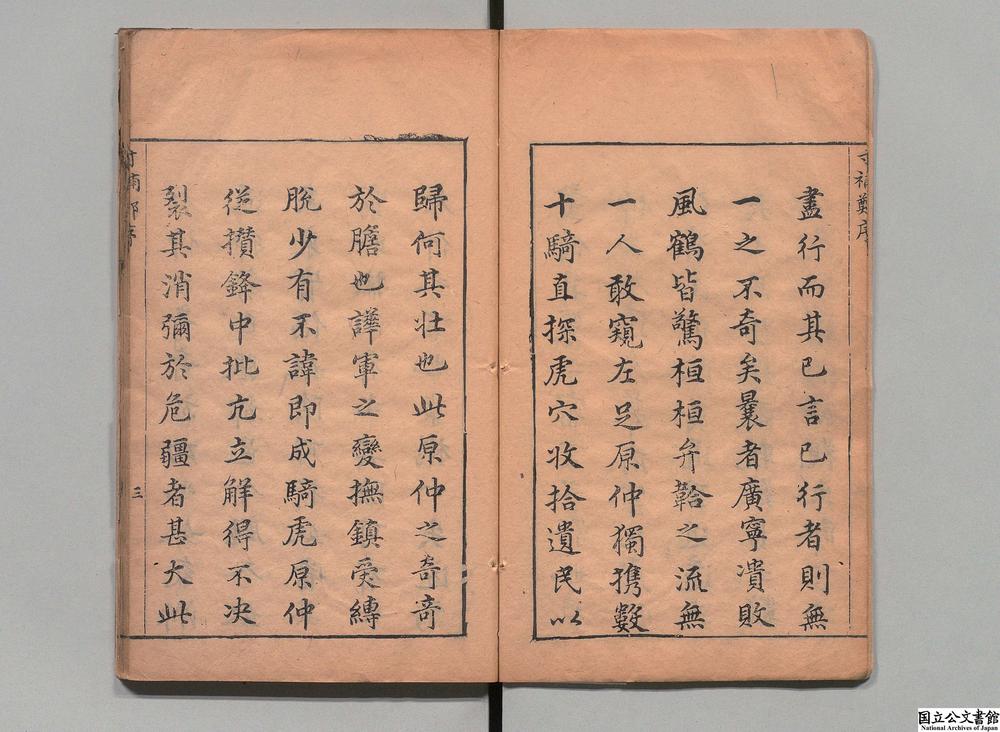 盡行而其已言已行者則無
一之不奇矣曩者廣寧潰敗
風鶴皆驚桓桓弁鞈之流無
一人敢窺左足原仲獨攜數
十騎直探虎穴收拾遺民以
歸何其壯也此原仲之奇奇
於膽也譁軍之變撫鎮受縛
脫少有不諱即成騎虎原仲
從攢鋒中批亢立解得不决
裂其消彌於危疆者甚大此
三
国立公文書館
National Archives of Japan